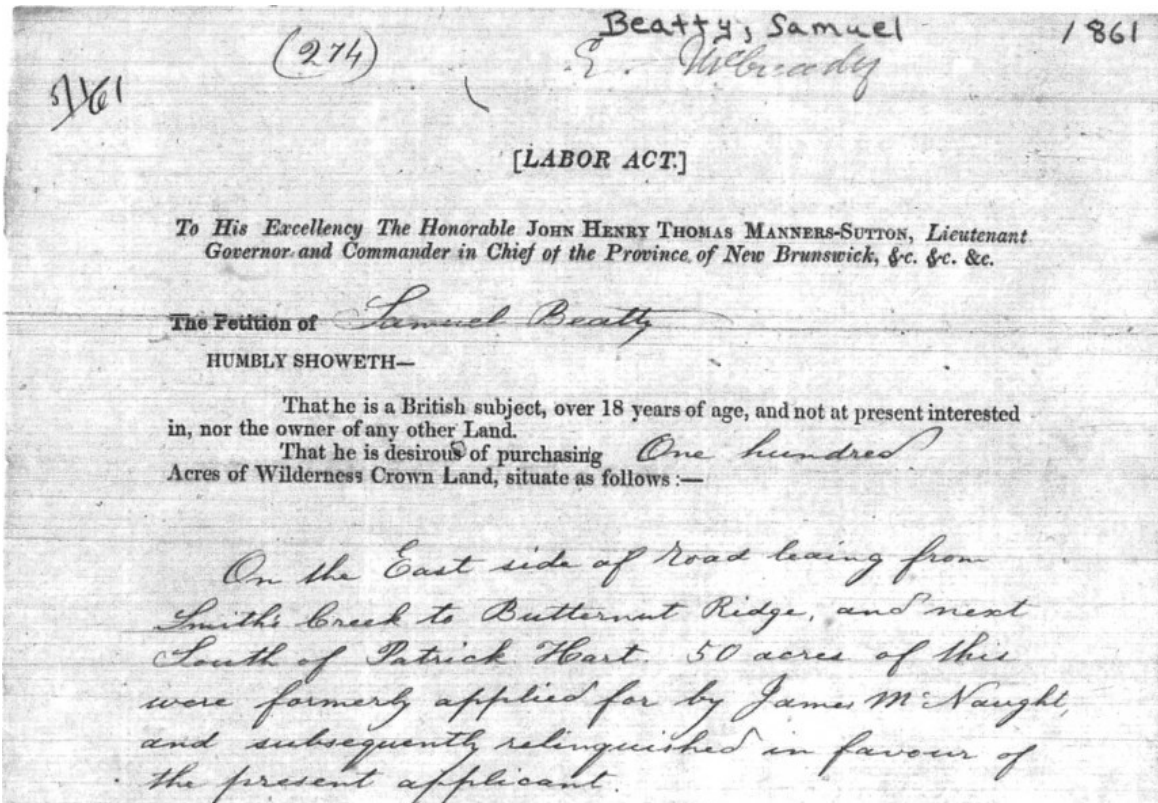 Beatty, Samuel 1861
(274)
E. McCready
5/1/61
[LABOR ACT.]
To His Excellency The Honorable JOHN HENRY THOMAS MANNERS-SUTTON, Lieutenant
Governor and Commander in Chief of the Province of New Brunswick, &c. &c. &c.
The Petition of Samuel Beatty
HUMBLY SHOWETH—
That he is a British subject, over 18 years of age, and not at present interested
in, nor the owner of any other Land.
That he is desirous of purchasing One hundred
Acres of Wilderness Crown Land, situate as follows :—
On the East side of road leaing from
Smith's Creek to Butternut Ridge, and next
South of Patrick Hart. 50 acres of this
were formerly applied for by James McNaught,
and subsequently relinquished in favour of
the present applicant.